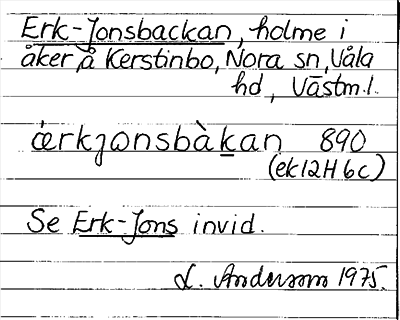 Erk-Jonsbackan, holme i
åker, å Kerstinbo, Nora sn, Våla
hd, Västm.l.
ǽrkjonsbàkan 890
(ek 12H 6c)
Se Erk-Jons invid.
L. Andersson 1975.